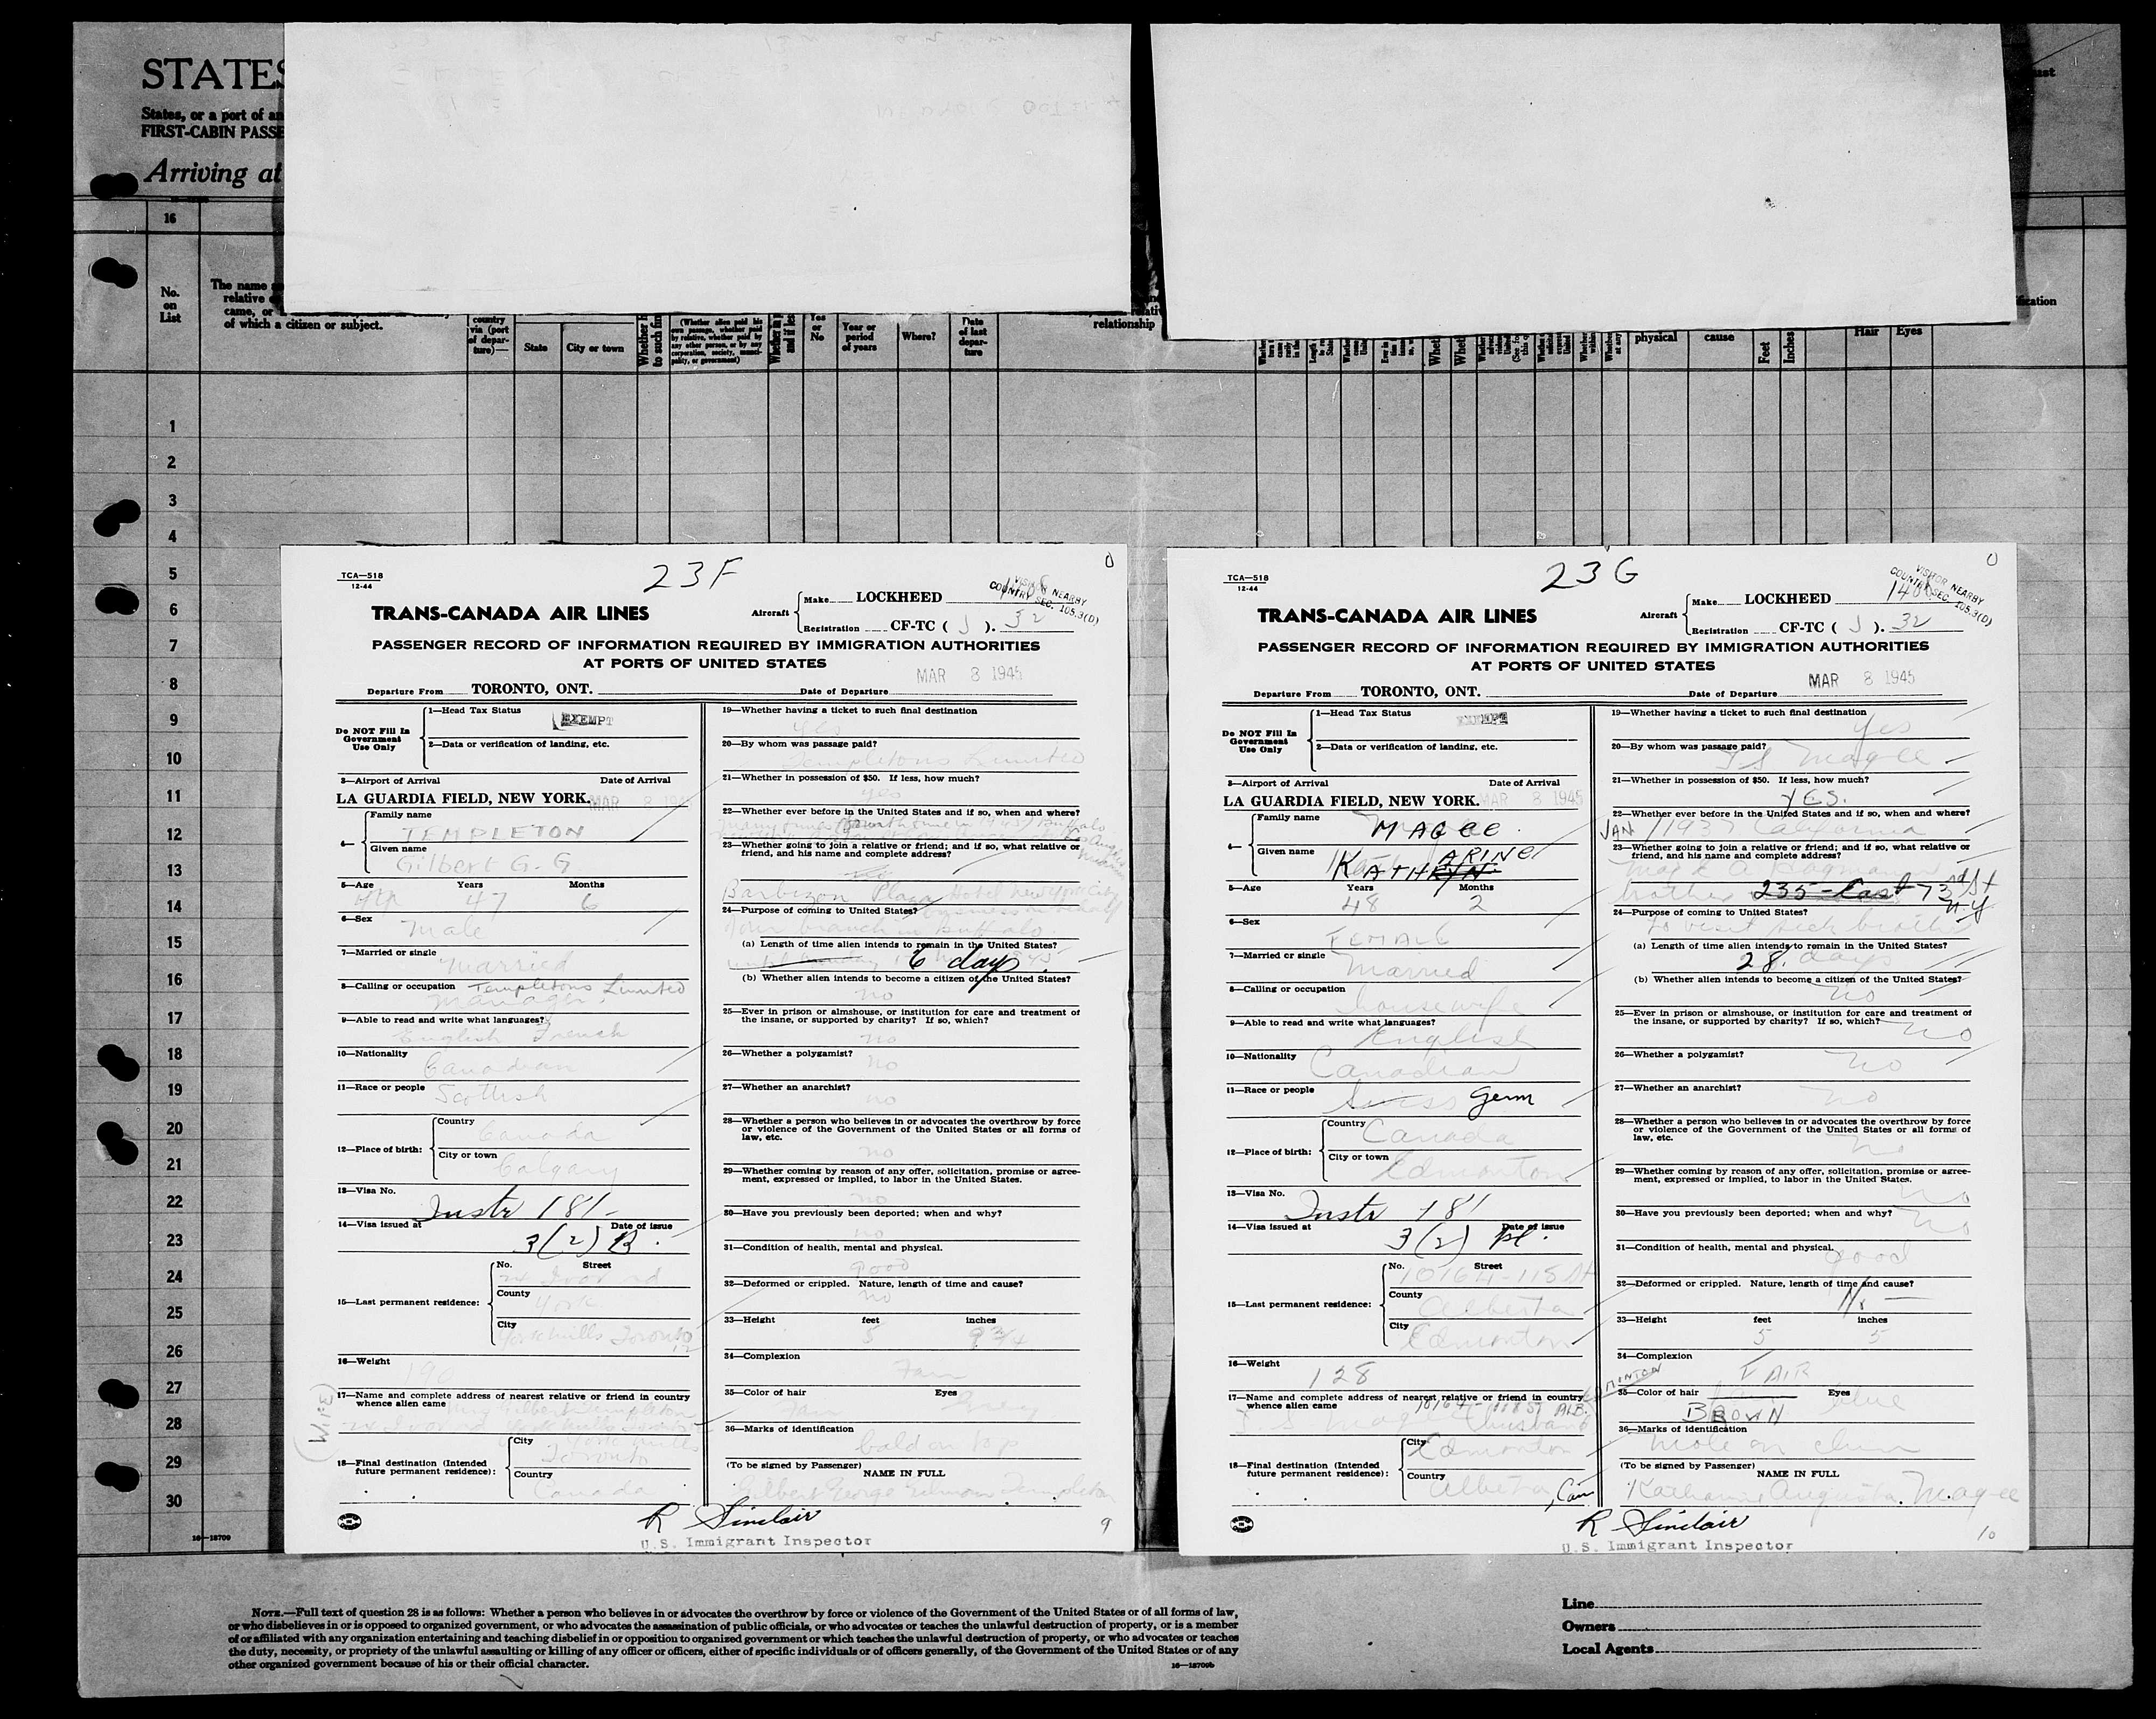 STATES
States, or a port of an
FIRST-CABIN PASSE
Arriving at
16
No.
on
List
The name
relative
came, or
of which a citizen or subject.
country
via (port
of depar-
ture)—
State
City or town
(Whether alien paid his
own passage, whether paid
by relative, whether paid by
any other person, or by any
corporation, society, munici-
pality, or government)
Yes
or
No
Year or
period
of years
Where?
Date
of last
depar-
ture
relationship
physical
cause
Feet
Inches
Hair
Eyes
1
2
3
4
5
6
7
8
9
10
11
12
13
14
15
16
17
18
19
20
21
22
23
24
25
26
27
28
29
30
16—18709
23F
TCA—518
12-44
TRANS-CANADA AIR LINES
Aircraft
Make LOCKHEED
Registration CF-TC ( J ). 32
VISITOR NEARBY
COUNTRY SEC. 105.3(D)
PASSENGER RECORD OF INFORMATION REQUIRED BY IMMIGRATION AUTHORITIES
AT PORTS OF UNITED STATES
MAR 8 1945
Departure From TORONTO, ONT. Date of Departure
Do NOT Fill In
Government
Use Only
1—Head Tax Status
EXEMPT
2—Data or verification of landing, etc.
3—Airport of Arrival Date of Arrival
LA GUARDIA FIELD, NEW YORK. MAR 8 194
4—
Family name
TEMPLETON
Given name
Gilbert G. G
5—Age Years Months
47 6
6—Sex
Male
7—Married or single
Married
8—Calling or occupation Templetons Limited
Manager
9—Able to read and write what languages?
English French
10—Nationality
Canadian
11—Race or people
Scottish
12—Place of birth:
Country
Canada
City or town
Calgary
13—Visa No.
Instr 181-
14—Visa issued at Date of issue
3(2) B.
15—Last permanent residence:
No. Street
24 Ivor rd
County
York
City
York Mills Toronto
12
16—Weight
190
17—Name and complete address of nearest relative or friend in country
whence alien came
18—Final destination (Intended
future permanent residence):
City
York Mills
Toronto
Country
Canada
19—Whether having a ticket to such final destination
Yes
20—By whom was passage paid?
Templetons Limited
21—Whether in possession of $50. If less, how much?
yes
22—Whether ever before in the United States and if so, when and where?
23—Whether going to join a relative or friend; and if so, what relative or
friend, and his name and complete address?
no
Barbizon Plaza Hotel New York City
24—Purpose of coming to United States?
Your branch in Buffalo.
(a) Length of time alien intends to remain in the United States?
6 days.
(b) Whether alien intends to become a citizen of the United States?
no
25—Ever in prison or almshouse, or institution for care and treatment of
the insane, or supported by charity? If so, which?
no
26—Whether a polygamist?
no
27—Whether an anarchist?
no
28—Whether a person who believes in or advocates the overthrow by force
or violence of the Government of the United States or all forms of
law, etc.
no
29—Whether coming by reason of any offer, solicitation, promise or agree-
ment, expressed or implied, to labor in the United States.
no
30—Have you previously been deported; when and why?
no
31—Condition of health, mental and physical.
good
32—Deformed or crippled. Nature, length of time and cause?
no
33—Height feet inches
5 9 3/4
34—Complexion
Fair
35—Color of hair Eyes
Fair Grey
36—Marks of identification
bald on top
(To be signed by Passenger)
NAME IN FULL
Gilbert George Templeton
R Sinclair
U.S. Immigrant Inspector
9
23G
TCA—518
12-44
TRANS-CANADA AIR LINES
Aircraft
Make LOCKHEED
Registration CF-TC ( J ). 32
VISITOR NEARBY
COUNTRY SEC. 105.3(D)
PASSENGER RECORD OF INFORMATION REQUIRED BY IMMIGRATION AUTHORITIES
AT PORTS OF UNITED STATES
MAR 8 1945
Departure From TORONTO, ONT. Date of Departure
Do NOT Fill In
Government
Use Only
1—Head Tax Status
EXEMPT
2—Data or verification of landing, etc.
3—Airport of Arrival Date of Arrival
LA GUARDIA FIELD, NEW YORK. MAR 8 1945
4—
Family name
MAGEE
Given name
KATHARINE
5—Age Years Months
48 2
6—Sex
FEMALE
7—Married or single
Married
8—Calling or occupation
housewife
9—Able to read and write what languages?
English
10—Nationality
Canadian
11—Race or people
Swiss Germ
12—Place of birth:
Country
Canada
City or town
Edmonton
13—Visa No.
Instr 181
14—Visa issued at Date of issue
3(2)
15—Last permanent residence:
No. Street
10164-115 St
County
Alberta
City
Edmonton
16—Weight
128
17—Name and complete address of nearest relative or friend in country
whence alien came 10164-118 ST ALB.
husband
18—Final destination (Intended
future permanent residence):
City
Edmonton
Country
Alberta, Can
19—Whether having a ticket to such final destination
yes
20—By whom was passage paid?
T S Magee
21—Whether in possession of $50. If less, how much?
YES.
22—Whether ever before in the United States and if so, when and where?
JAN 1937 California
23—Whether going to join a relative or friend; and if so, what relative or
friend, and his name and complete address?
brother 235-East 73rd St
N.Y
24—Purpose of coming to United States?
To visit sick brother
(a) Length of time alien intends to remain in the United States?
28. days
(b) Whether alien intends to become a citizen of the United States?
no
25—Ever in prison or almshouse, or institution for care and treatment of
the insane, or supported by charity? If so, which?
no
26—Whether a polygamist?
no
27—Whether an anarchist?
no
28—Whether a person who believes in or advocates the overthrow by force
or violence of the Government of the United States or all forms of
law, etc.
no
29—Whether coming by reason of any offer, solicitation, promise or agree-
ment, expressed or implied, to labor in the United States.
no
30—Have you previously been deported; when and why?
no
31—Condition of health, mental and physical.
good
32—Deformed or crippled. Nature, length of time and cause?
33—Height feet inches
5 5
34—Complexion
FAIR
35—Color of hair Eyes
BROWN blue
36—Marks of identification
mole on chin
(To be signed by Passenger)
NAME IN FULL
Katharine Augusta Magee
R Sinclair
U.S. Immigrant Inspector
10
NOTE.—Full text of question 28 is as follows: Whether a person who believes in or advocates the overthrow by force or violence of the Government of the United States or of all forms of law,
or who disbelieves in or is opposed to organized government, or who advocates the assassination of public officials, or who advocates or teaches the unlawful destruction of property, or is a member
of or affiliated with any organization entertaining and teaching disbelief in or opposition to organized government or which teaches the unlawful destruction of property, or who advocates or teaches
the duty, necessity, or propriety of the unlawful assaulting or killing of any officer or officers, either of specific individuals or of officers generally, of the Government of the United States or of any
other organized government because of his or their official character.
16—18709b
Line
Owners
Local Agents